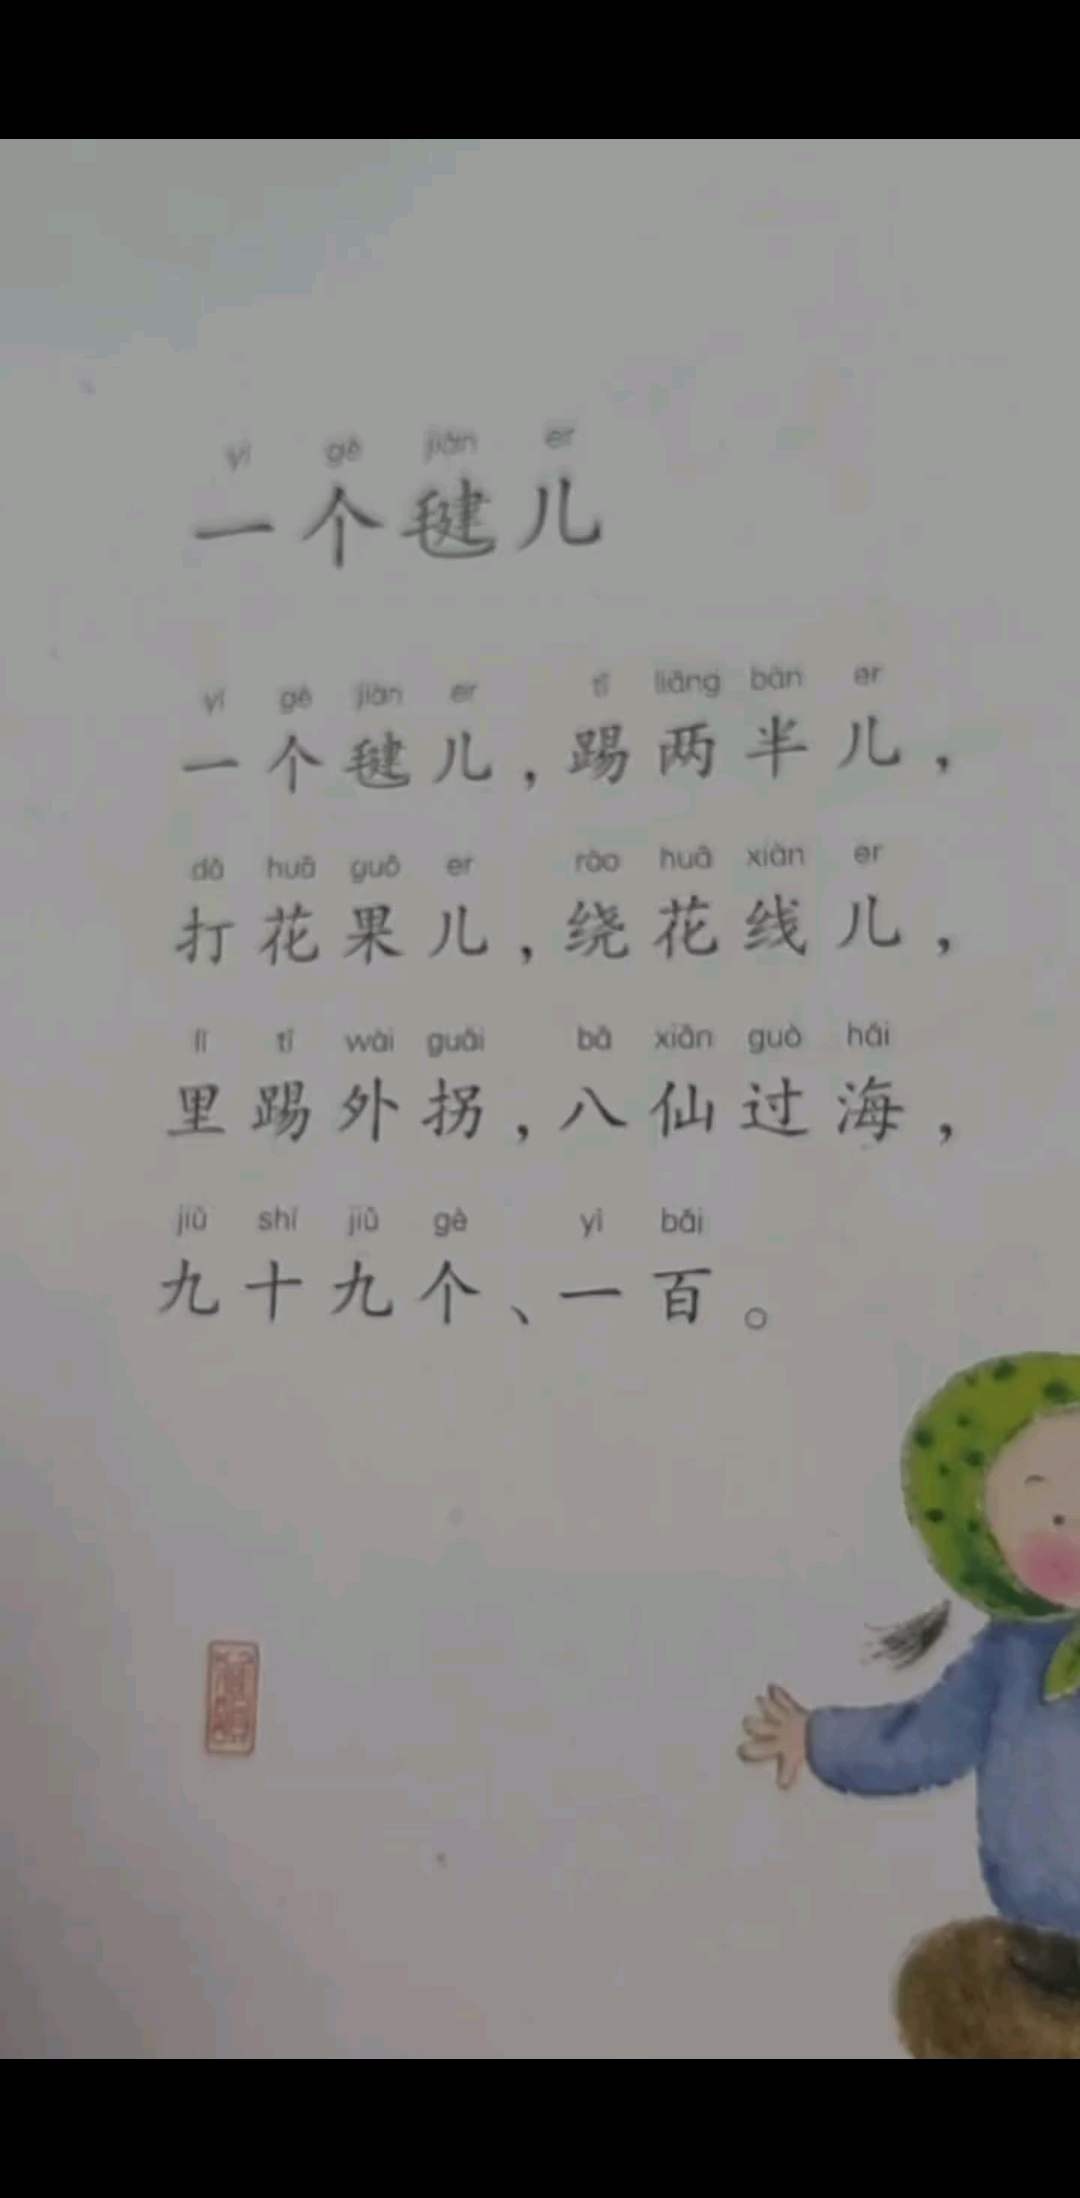 yí gè jiàn er
一个毽儿
yí gè jiàn er tī liǎng bàn er
一个毽儿，踢两半儿，
dǎ huā guǒ er rào huā xiàn er
打花果儿，绕花线儿，
lǐ tī wài guǎi bā xiān guò hǎi
里踢外拐，八仙过海，
jiǔ shí jiǔ gè yì bǎi
九十九个、一百。